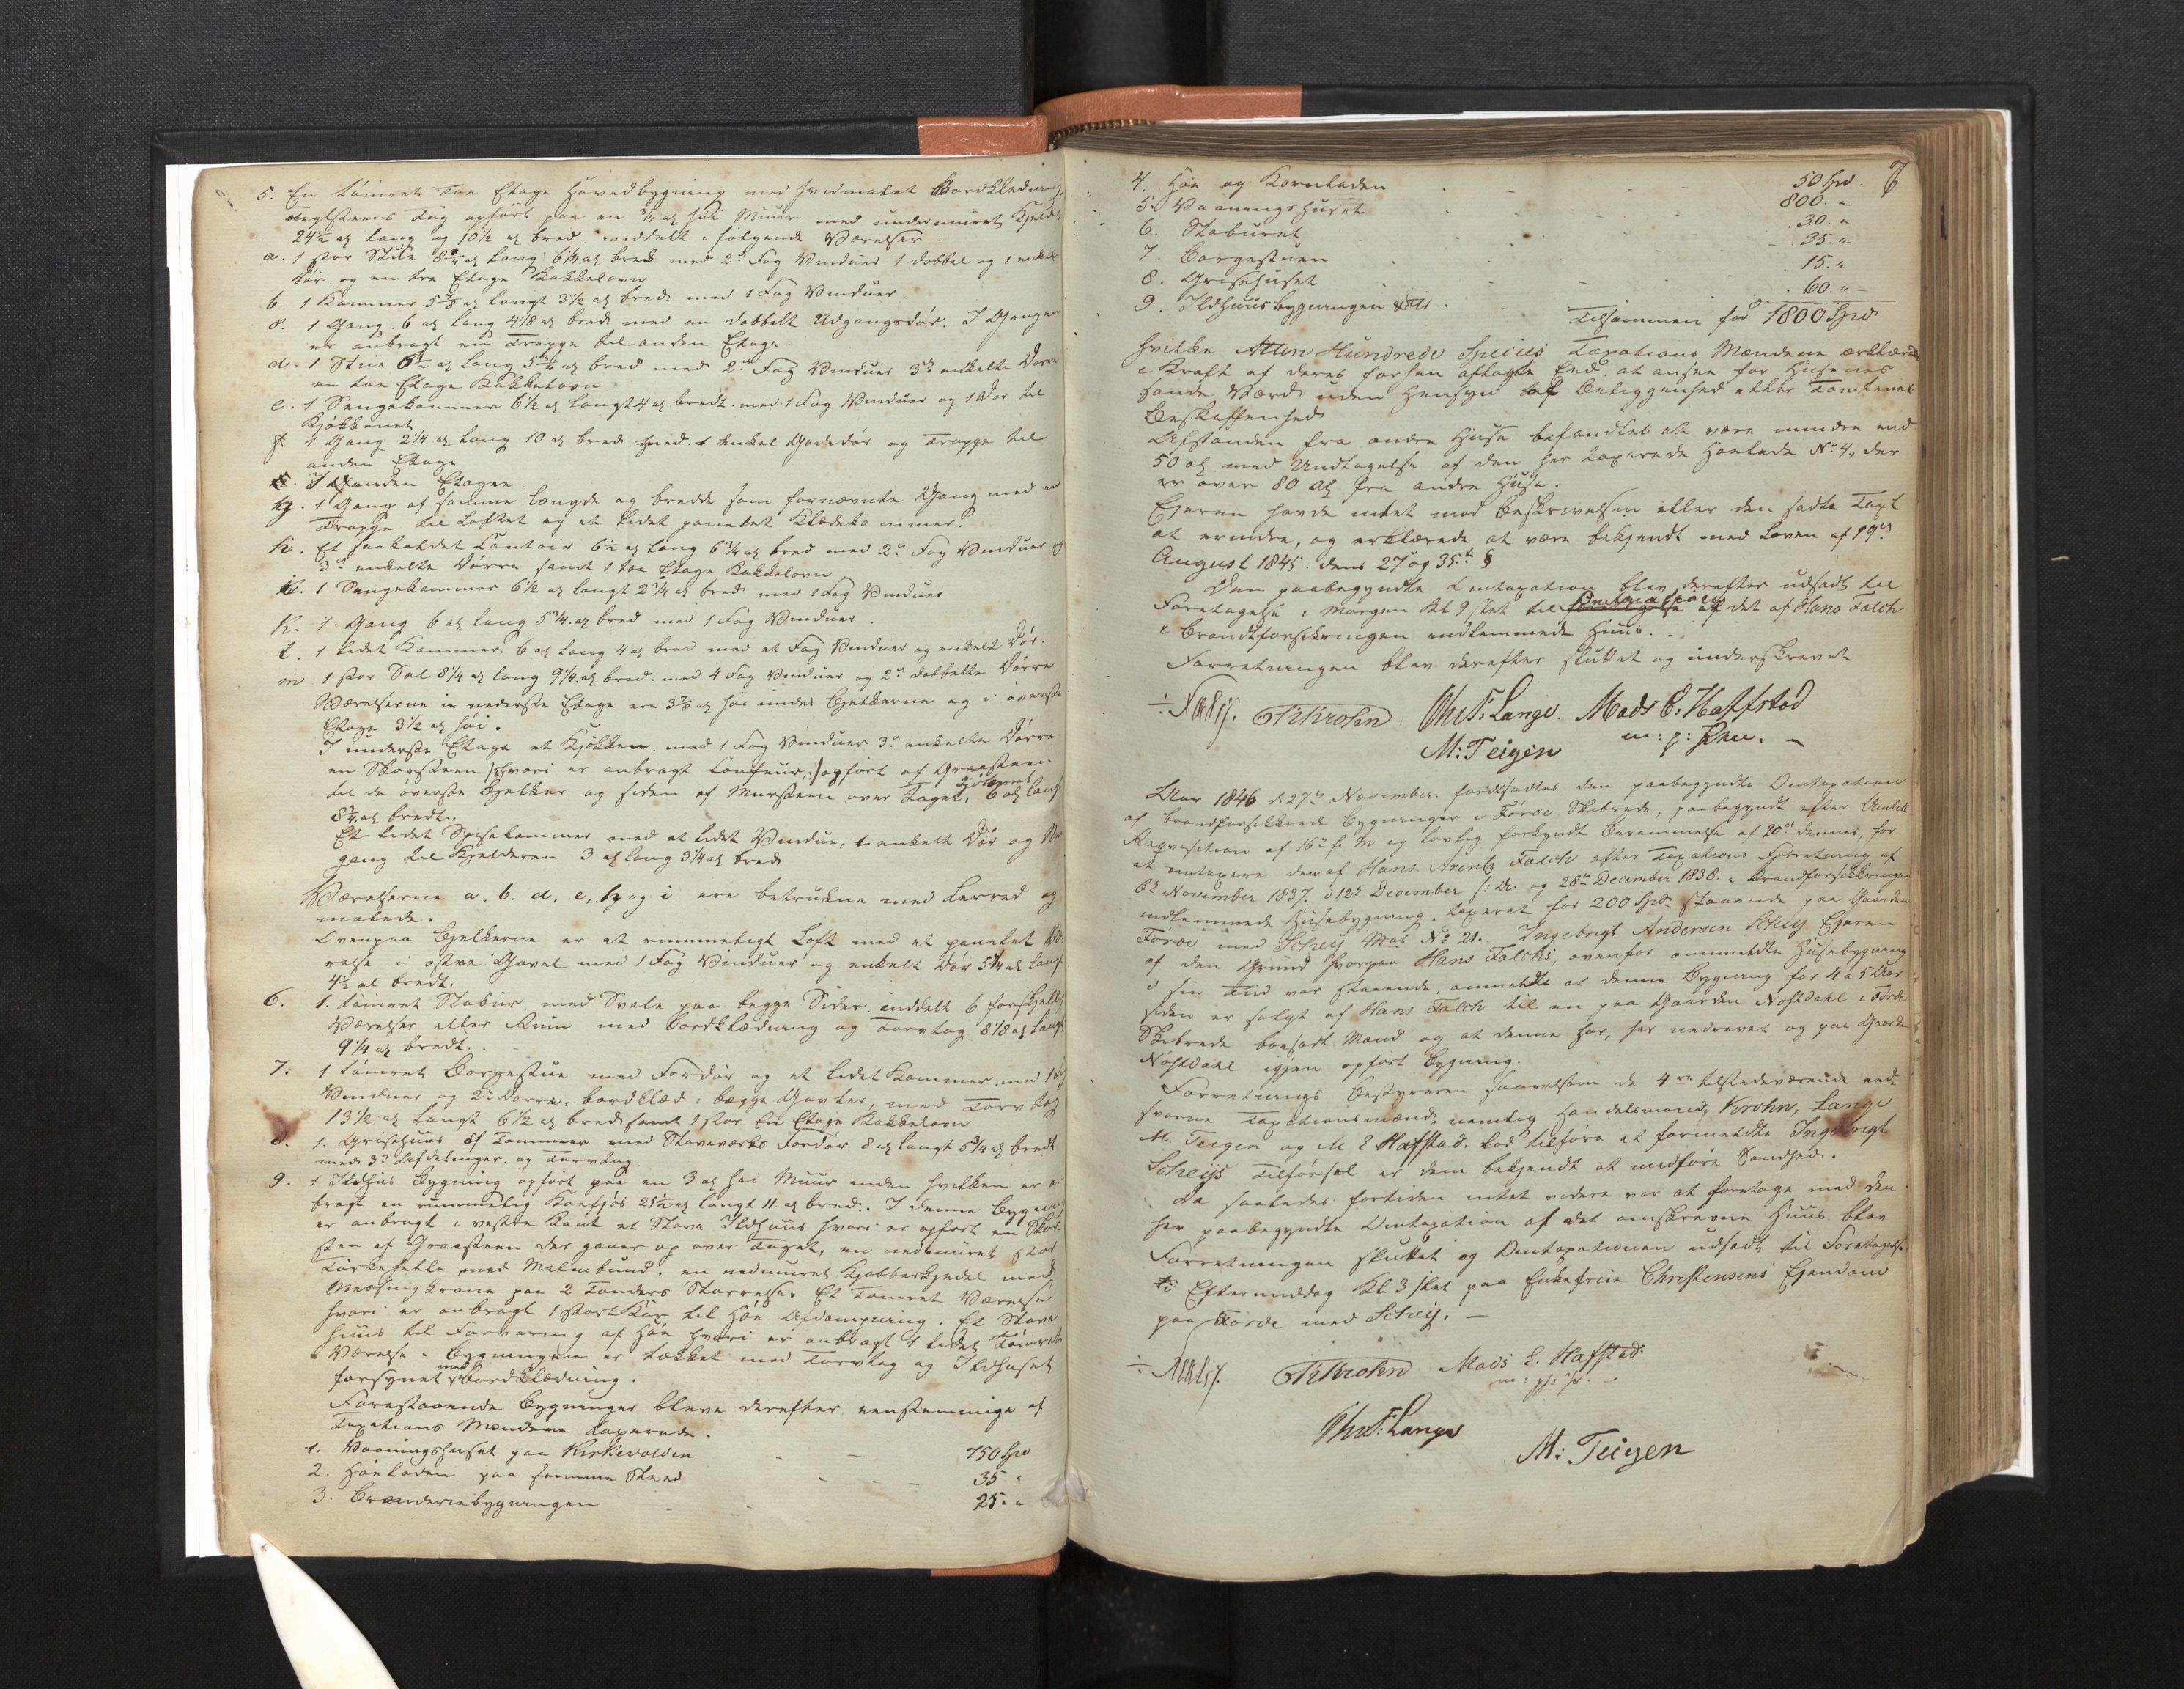 5. En tømret toe Etage Hovedbygning med hvidmalet Bordklædning,
Teglsteens Tag opført paa en 3/4 al høi Muur med undermuret Kjelder
24 1/2 al lang og 10 1/2 al bred inddelt i følgende Værelser
a. 1 stor Stue 8 1/4 al lang 6 1/4 al bred med 2de Fag Vinduer 1 dobbel og 1 enkelt
Dør og en tre Etage Kakkelovn
b. 1 Kammer 5 7/8 al langt 3 1/2 al bredt med 1 Fag Vinduer.
1 Gang 6 al lang 4 1/8 al bred med en dobbelt Udgangsdør. I Gangen
er anbragt en Trappe til anden Etage.
d. 1 Stue 6 1/2 al lang 5 3/4 al bred med 2de Fag Vinduer 3de enkelte Dørre
en toe Etage Kakkelovn
e. 1 Sengekammer 6 1/2 al langt 4 al bredt med 1 Fag Vinduer og 1 Dør til
Kjøkkenet
f. 1 Gang 2 1/4 al lang 10 al bred med 1 enkel Gadedør og Trappe til
anden Etage
I Anden Etagen.
g. 1 Gang af samme længde og bredde som fornævnte Gang med en
Trappe til Loftet og et lidet panelet Klædekammer.
h. Et saakaldet Contoir 6 1/2 al lang 6 3/4 al bred med 2de Fag Vinduer og
3de enkelte Dørre samt 1 toe Etage Kakkelovn
i. 1 Sengekammer 6 1/2 al langt 2 3/4 al bred med 1 Fag Vinduer
k. 1 Gang 6 al lang 5 3/4 al bred med 1 Fag Vinduer.
l. 1 lidet Kammer 6 al lang 4 al bred med et Fag Vinduer og enkelt Dør.
m 1 stor Sal 8 1/4 al lang 9 1/4 al bred med 4 Fag Vinduer og 2de dobbelte Dørre
Værelserne i nederste Etage ere 3 7/8 al høi under Bjelkerne og i øverste
Etage 3 1/2 al høi.
I underste Etage et Kjøkken med 1 Fag Vinduer 3de enkelte Dørre
en Skorsteen /:hvori er anbragt Comfuur,:/ opført af Graasteen
til de øverste Bjelker og siden af Muursteen over Taget, Kjøkkenet 6 al langt
8 3/4 al bredt.
Et lidet Spisekammer med et lidet Vindue, 1 enkelt Dør og
gang til Kjelderen 3 al lang 3 1/4 al bred
Værelserne a, b. d, e, h og i ere betrukne med Lerred og
malede.
Ovenpaa Bjelkerne er et rummeligt Loft med et panelet Væ-
relse i østre Gavel med 1 Fag Vinduer og enkelt Dør 5 1/4 al langt
4 1/2 al bredt.
6. 1. tømret Stabur med Svale paa begge Sider inddelt 6 forskjellige
Værelser eller Rum med Bordklædning og Torvtag 8 1/8 al langt
9 1/4 al bredt.
7: 1 tømret Borgestue med Fordør og et lidet Kammer med 1 Fag
Vinduer og 2de Dørre, bordklæd i begge Gavler, med Torvtag
13 1/2 al langt 6 1/2 al bred samt 1 stor En Etage Kakkelovn
8. 1. Grisehuus af Tømmer med Staveværks Fordør 8 al langt 5 3/4 al bredt
med 3de Afdelinger og Torvtag.
9. 1 Ildhus Bygning opført paa en 3 al høi Muur under hvilken er an-
bragt en rummelig Koefjøs 25 1/2 al langt 11 al bred. I denne Bygning
er anbragt i vestre Kant et Stave Ildhuus hvori er opført en Skor-
steen af Graasteen der gaaer op over Taget, en nedmuret stor
Tørkehelle med Malmbund, en nedmuret Kjobberkjedel med
Messing Krane paa 2 Tønders Størrelse. Et Tømret Værelse
hvori er anbragt 1 stort Kar til Høe Afdampning. Et Stave
huus til Forvaring af Høe hvori er anbragt 1 lidet Tømret
Værelse. Bygningen er tækket med Torvtag og Ildhuset
forsynet med Bordklædning.
Forestaaende Bygninger bleve derefter eenstemmige af
Taxations Mændene taxerede.
1. Vaaningshuset paa Kirkevolden - - 750 Spd
2. Høeladen paa samme Sted - - 35 "
3. Brænderiebygningen - - 25. "
7
4. Høe og Kornladen - - 50 Spd.
5. Vaaningshuset - - 800. "
6. Staburet - - 30. "
7. Borgestuen - - 35. "
8. Grisehuset - - 15. "
9. Ildhuusbygningen - - 60. " -
Tilsammen for 1800 Spd
hvilke Atten Hundrede Species Taxations Mændene erklærede
i Kraft af deres forhen aflagte Eed at ansee for Husenes
sande Værd uden Hensyn til Beliggenhed eller Tomtenes
Beskaffenhed
Afstanden fra andre Huse befandtes at være mindre end
50 al med Undtagelse af den her taxerede Høelade No 4, der
er over 80 Al fra andre Huse.
Eieren havde intet mod Beskrivelsen eller den satte Taxt
at erindre, og erklærede at være bekjendt med Loven af 19de
August 1845. dens 27 og 35te §
Den paabegyndte Omtaxation blev derefter udsadt til
Foretagelse i Morgen Kl 9 slet til Omtaxation af det af Hans Falch
i Brandforsikringen indlemmede Huus.
Forretningen blev derefter sluttet og underskrevet
Krohn Chr F: Lange. Mads E: Haffstad
M: Teigen m: p: Pen. -
Aar 1846 d 27de November fortsadtes den paabegyndte Omtaxation
af brandforsikkrede Bygninger i Førde Skibrede, paabegyndt efter Amtets
Reqvisition af 16de f. M og lovlig forkyndt Berammelse af 20de dennes, for
at omtaxere den af Hans Arentz Falch efter Taxations Forretning af
6te November 1837. d 12te December s: A. og 28de December 1838. i Brandforsikkringen
indlemmede Husebygning, taxeret for 200 Spd staaende paa Gaarden
Førde med Schey Mat No 21. Ingebrigt Andersen Schey Eieren
af den Grund hvorpaa Hans Falchs, ovenfor ommeldte Husebygning
i sin Tid var staaende, anmeldte at denne Bygning for 4 a 5 Aar
siden er solgt af Hans Falch til en paa Gaarden Nøstdahl i Førde
Skibrede boesadt Mand og at denne har, her nedrevet og paa Gaarden
Nøstdahl igjen opført Bygning.
Forretnings Bestyreren saavelsom de 4re tilstedeværende eed-
svorne Taxationsmænd, nemlig Handelsmand, Krohn, Lange
M. Teigen og M E Haffstad. lod tilføre at formeldte Ingebrigt
Scheys Tilførsel er dem bekjendt at medføre Sandhed.
Da saaledes fortiden intet videre var at foretage med den
her paabegyndte Omtaxation af det omskrevne Huus blev
Forretningen sluttet og Omtaxationen udsadt til Foretagelse
i Eftermiddag Kl 3 slet paa Enkefrue Christensens Eiendom
paa Førde med Schey. -
Krohn Mads E. Hafstad
Chr F: Lange
M: Teigen